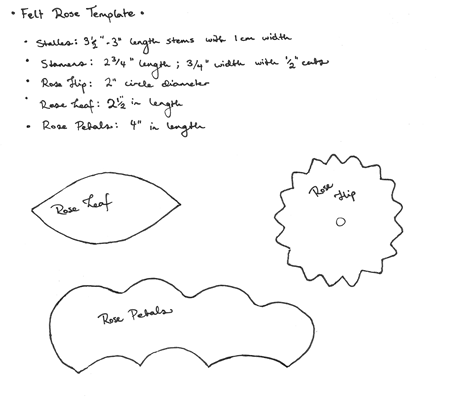 • Felt Rose Template •
• Stalles: 3½" - 3" length stems with 1cm width
• Stamens: 2 3/4" length ; 3/4" width with ½" cuts
• Rose Hip: 2" circle diameter
• Rose Leaf: 2½" in length
• Rose Petals: 4" in length
Rose Leaf
Rose Hip
Rose Petals